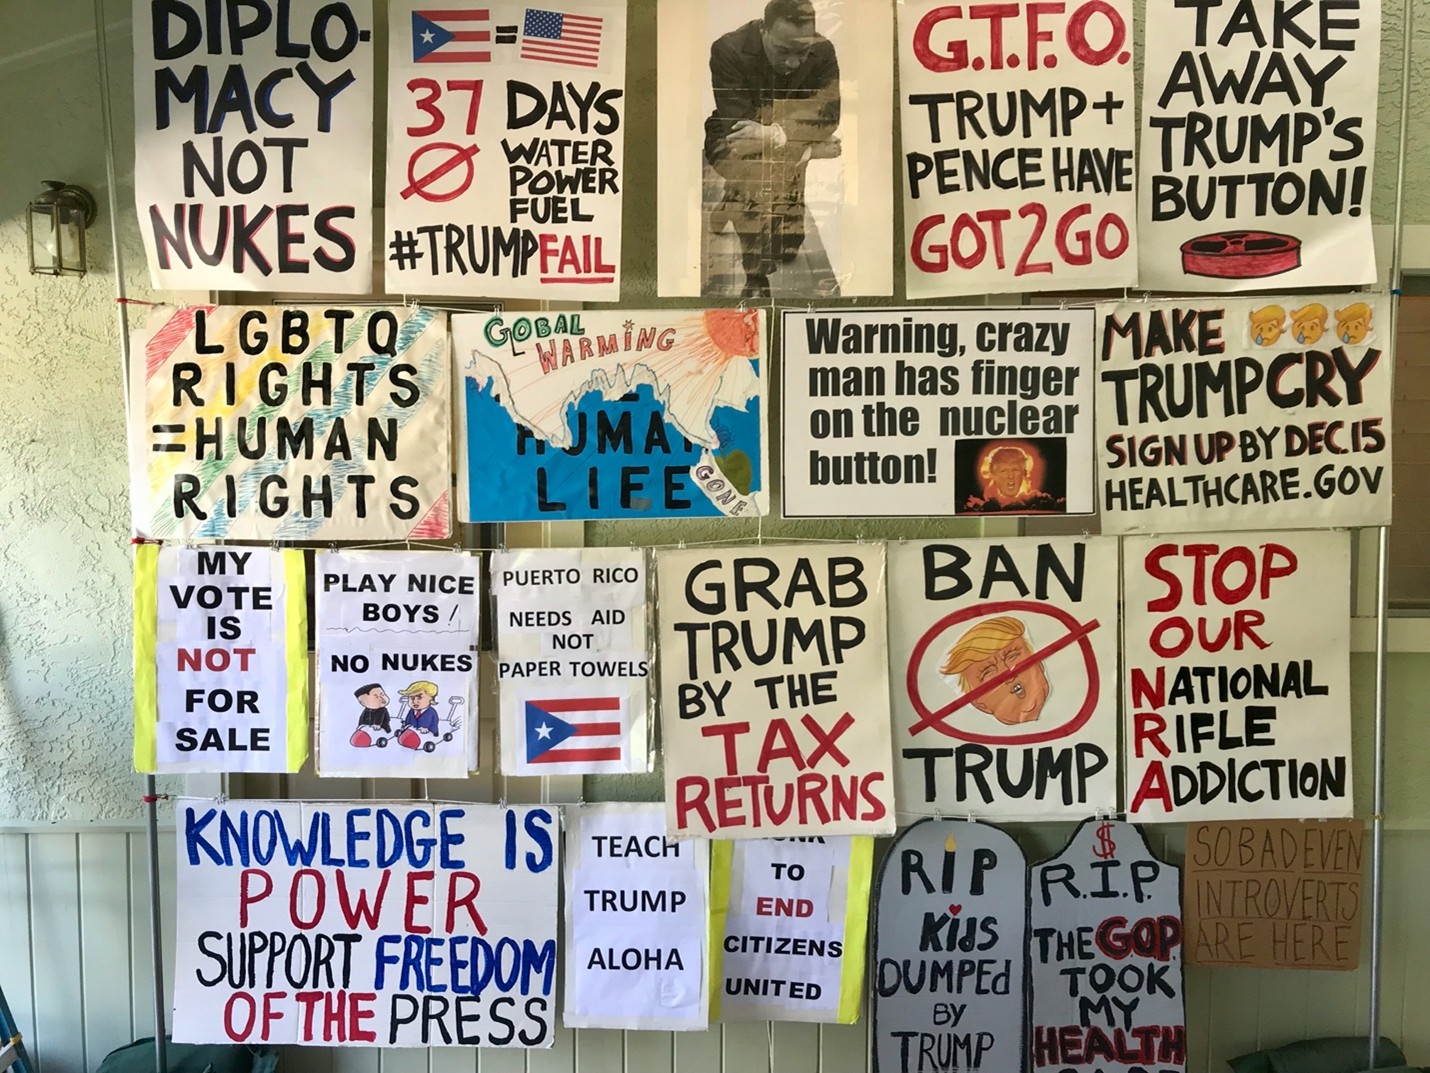 DIPLO-
MACY
NOT
NUKES
=
37 DAYS
WATER
POWER
FUEL
#TRUMPFAIL
G.T.F.O.
TRUMP+
PENCE HAVE
GOT2GO
TAKE
AWAY
TRUMP'S
BUTTON!
LGBTQ
RIGHTS
=HUMAN
RIGHTS
GLOBAL
WARMING
LIFE
GONE
Warning, crazy
man has finger
on the nuclear
button!
MAKE
TRUMP CRY
SIGN UP BY DEC 15
HEALTHCARE.GOV
MY
VOTE
IS
NOT
FOR
SALE
PLAY NICE
BOYS!
NO NUKES
PUERTO RICO
NEEDS AID
NOT
PAPER TOWELS
GRAB
TRUMP
BY THE
TAX
RETURNS
BAN
TRUMP
STOP
OUR
NATIONAL
RIFLE
ADDICTION
KNOWLEDGE IS
POWER
SUPPORT FREEDOM
OF THE PRESS
TEACH
TRUMP
ALOHA
TO
END
CITIZENS
UNITED
RIP
KidS
DUMPEd
BY
TRUMP
$
R.I.P.
THE G.O.P.
TOOK
MY
HEALTH
SO BAD EVEN
INTROVERTS
ARE HERE